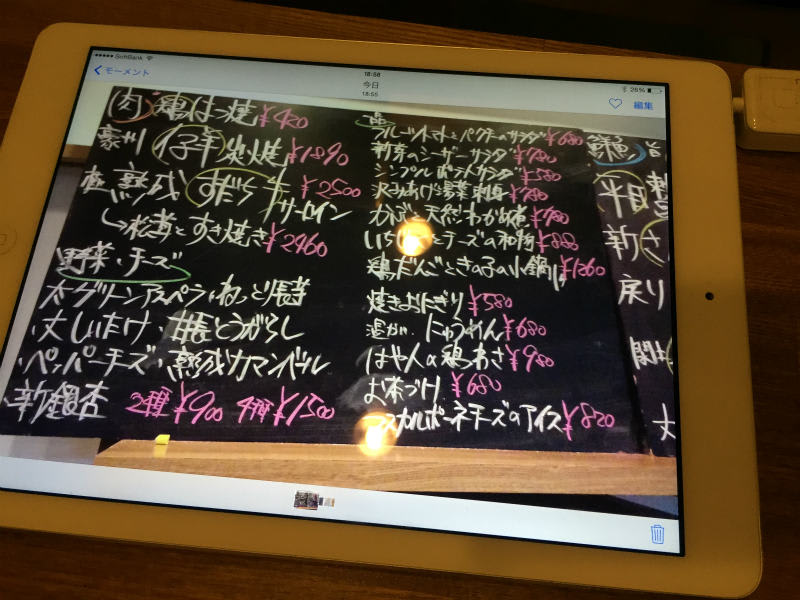 SoftBank
18:58
26%
モーメント
今日
18:55
編集
肉 鶏はつ焼 ¥420
豪州 仔羊炭火焼 ¥1890
熟成 すだち牛サーロイン ¥2500
→松茸とすき焼き ¥2460
野菜・チーズ
・太グリーンアスパラ・ねっとり長芋
・大しいたけ・甘長とうがらし
・ペッパーチーズ・熟成カマンベール
・新銀杏 2種¥900 4種¥1500
菜
フルーツトマトとパクチーのサラダ ¥680
のシーザーサラダ ¥780
シンプルポテトサラダ ¥580
¥780
かぶと天然わかめ ¥780
とチーズの和物 ¥880
鶏だんごときの子の小鍋 ¥1260
焼きおにぎり ¥580
温か にゅうめん ¥680
はや人の鶏わさ ¥980
お茶づけ ¥680
マスカルポーネチーズのアイス ¥820
鮮魚
新さ
戻り